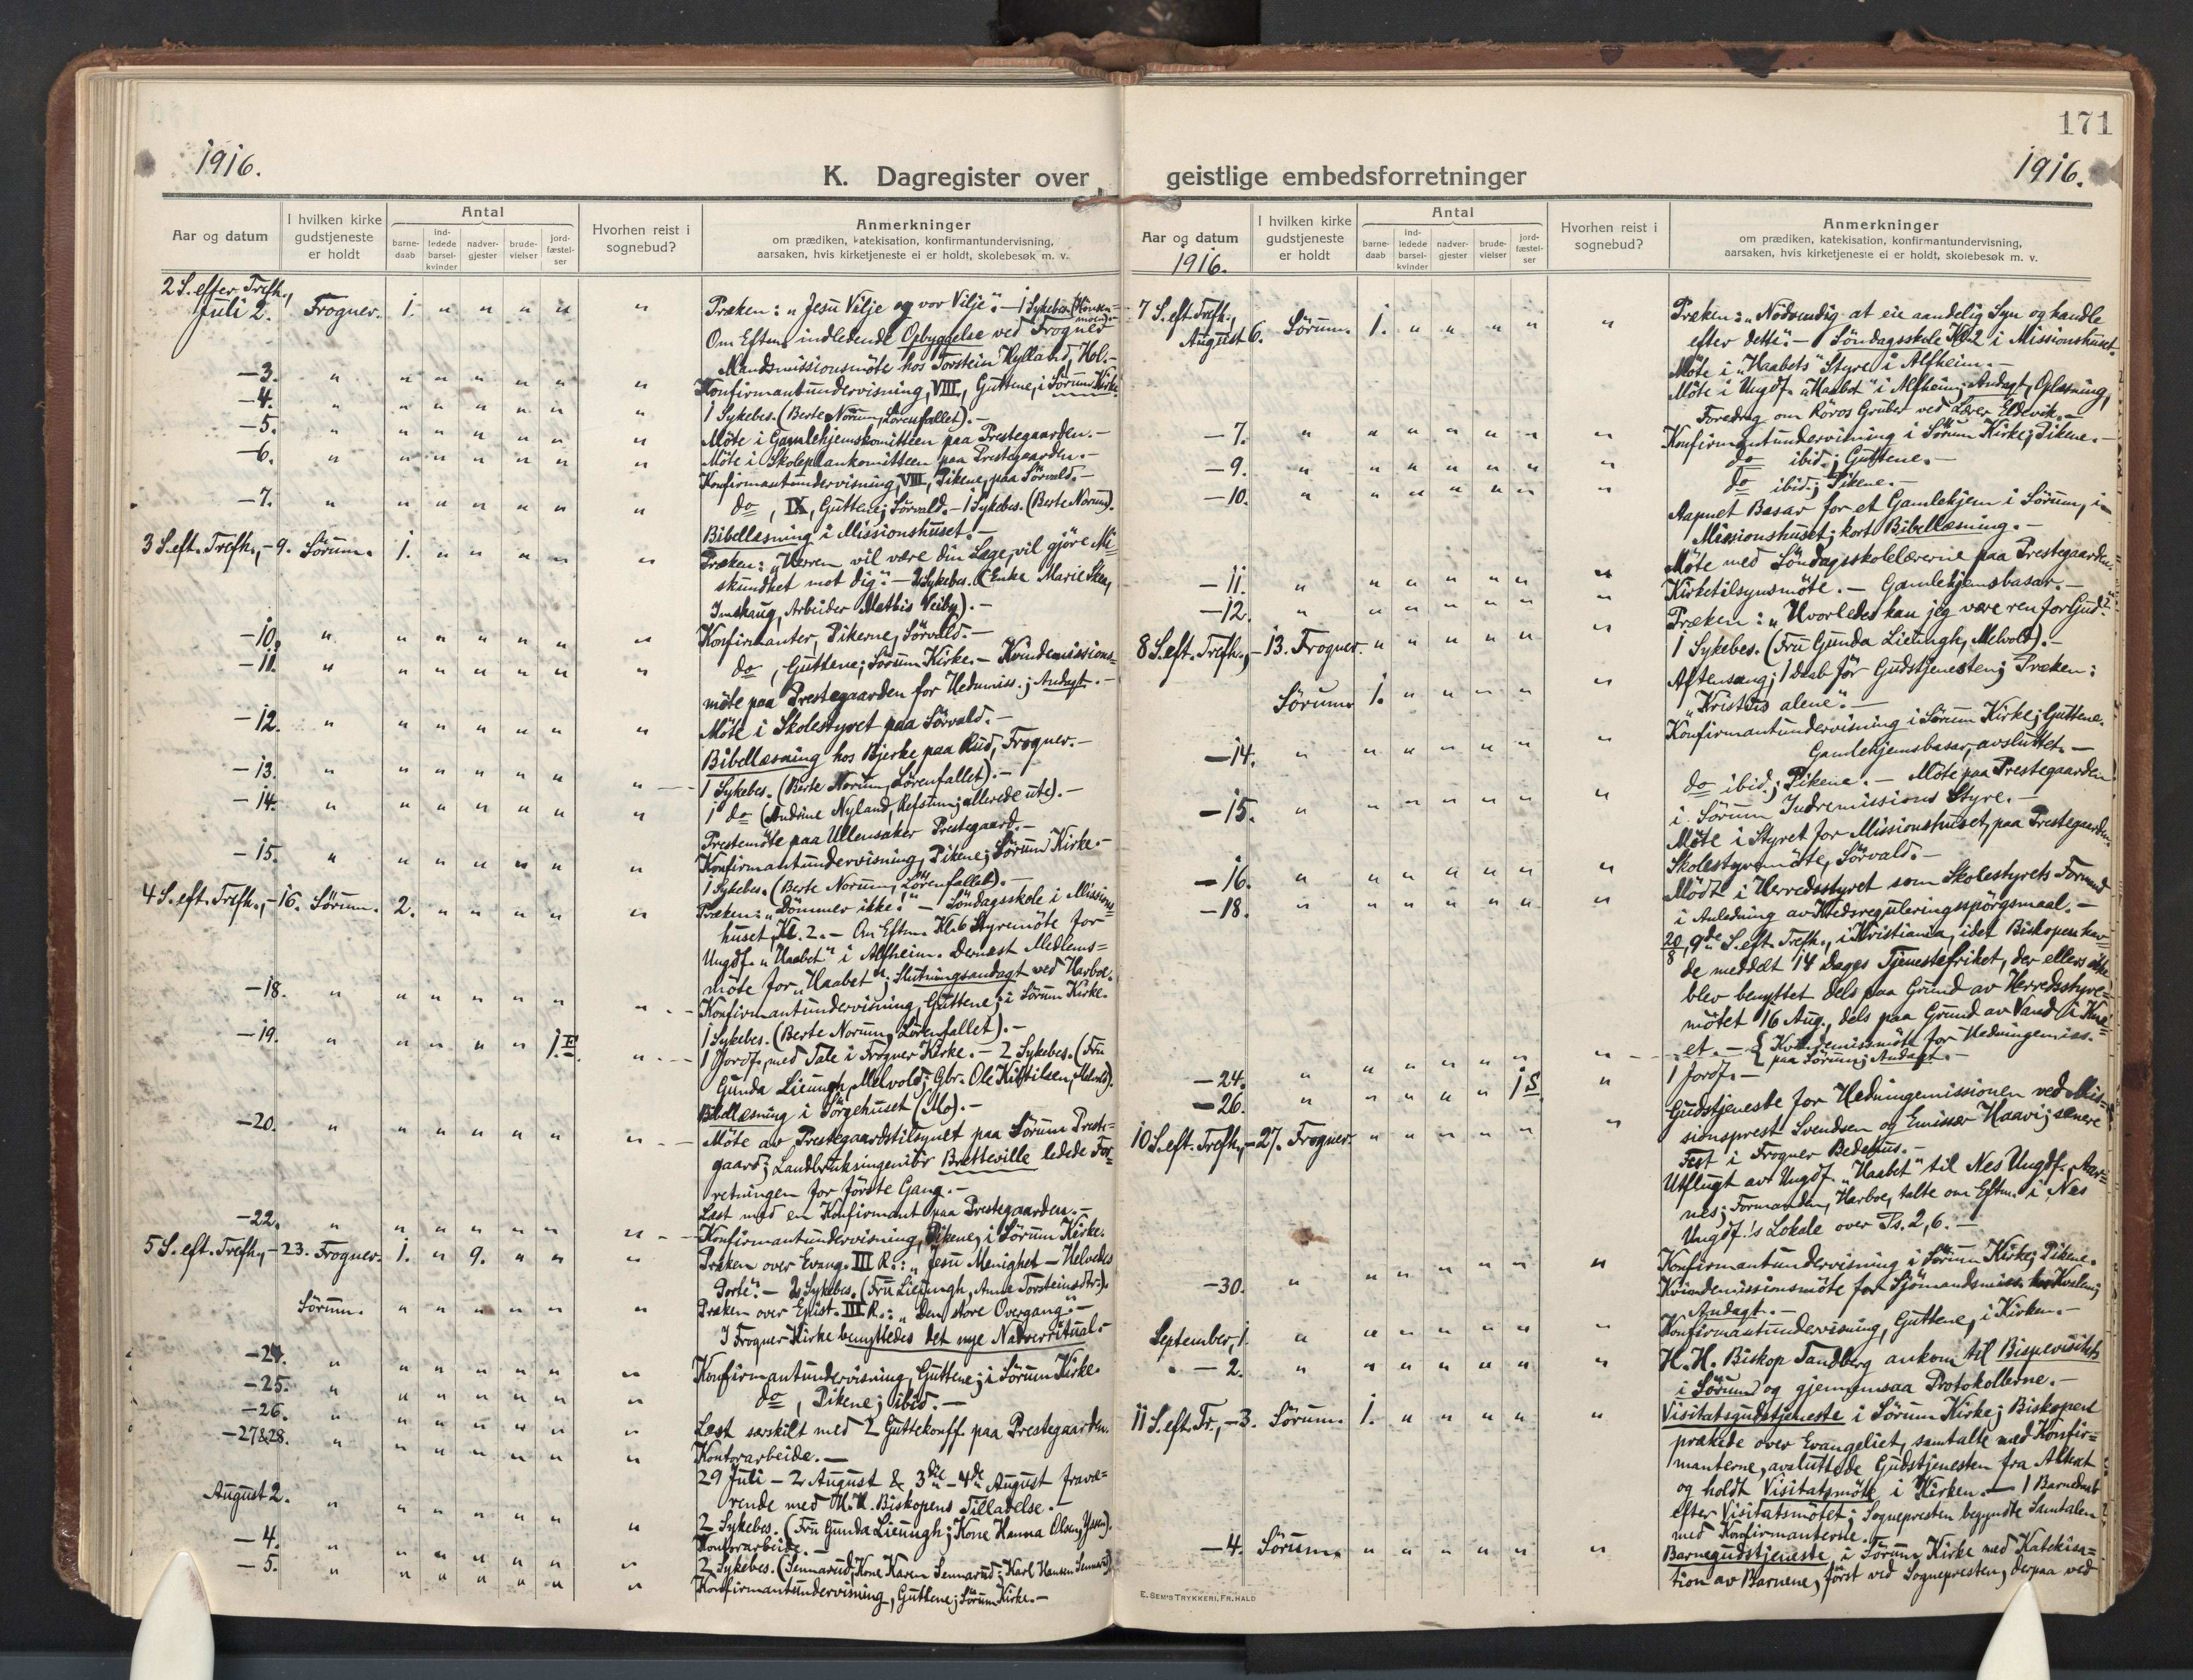 171
1916.
1916.
K. Dagregister over
geistlige embedsforretninger
Aar og datum
I hvilken kirke gudstjeneste er holdt
Antal
barne-daab
ind-ledede barsel-kvinder
nadver-gjester
brude-vielser
jord-fæstel-ser
Hvorhen reist i sognebud?
Anmerkninger
om prædiken, katekisation, konfirmantundervisning,
aarsaken, hvis kirketjeneste ei er holdt, skolebesøk m. v.
2 S. efter Trefh.,
Juli 2. Frogner. 1. " " " " " Præken: "Jesu Vilje og vor Vilje". – 1 Sykebes.
Om Eftm. indledende Opbyggelse ved Frogner
Mandsmissionsmöte hos Torstein Hylland, Hol. –
– 3. " " " " " " " Konfirmantundervisning, VIII, Guttene, i Sörum Kirke.
– 4. " " " " " " " 1 Sykebes. (Berte Norum, Lörenfallet). –
– 5. " " " " " " " Möte i Gamlehjemskomitteen paa Prestegaarden. –
– 6. " " " " " " " Möte i Skoleplankomitteen paa Prestegaarden. –
Konfirmantundervisning, VIII, Pikene, paa Sörvald. –
– 7. " " " " " " " do, IX, Guttene; Sörvald. – 1 Sykebes. (Berte Norum).
Bibellæsning i Missionshuset. –
3 S. eft. Trefh., – 9. Sörum. 1. " " " " " Præken: "Herren vil være din Læge, vil gjöre Mi=
skundhet mot dig". – 2 Sykebes. (Enke Marie
Imshaug, Arbeider Mathis Veiby). –
– 10. " " " " " " " Konfirmanter, Pikerne, Sörvald. –
– 11. " " " " " " " do, Guttene; Sörum Kirke. – Kvindemissions=
möte paa Prestegaarden for Hedmiss.; Andagt. –
– 12. " " " " " " " Möte i Skolestyret paa Sörvald. –
Bibellæsning hos Bjerke paa Rud, Frogner. –
– 13. " " " " " " " 1 Sykebes. (Berte Norum, Lörenfallet). –
– 14. " " " " " " " 1 do (Andrine Nyland, Refsum; allerede ute). –
Prestemöte paa Ullensaker Prestegaard. –
– 15. " " " " " " " Konfirmantundervisning, Pikene; Sörum Kirke. –
1 Sykebes. (Berte Norum, Lörenfallet). –
4 S. eft. Trefh., – 16. Sörum. 2. " " " " " Præken: "Dömmer ikke!" – Söndagsskole i Missions=
huset, Kl. 2. – Om Eftm. Kl. 6 Styremöte for
Ungdf. "Haabet" i Alfheim. Dernæst Medlems=
möte for "Haabet"; Slutningsandagt ved Harboe.
– 18. " " " " " " " Konfirmantundervisning, Guttene; i Sörum Kirke.
1 Sykebes. (Berte Norum, Lörenfallet). –
– 19. " " " " " 1 F. " 1 Jordf., med Tale i Frogner Kirke. – 2 Sykebes. (Fru
Gunda Lieungh, Melvold; Gbr. Ole Kittilsen, Melvold).
Bibellæsning i Sörgehuset (Mo). –
– 20. " " " " " " " Möte av Prestegaardstilsynet paa Sörum Preste=
gaard; Landbruksingeniör Bretteville ledede For=
retningen for förste Gang. –
Læst med en Konfirmant paa Prestegaarden. –
– 22. " " " " " " " Konfirmantundervisning, Pikene, i Sörum Kirke.
5 S. eft. Trefh., – 23. Frogner. 1. " 9. " " " Præken over Evang. III R.: "Jesu Menighet – Helvedes
Porte". – 2 Sykebes. (Fru Lieungh, Anna Torsteinsdtr.).
Sörum. " " " " " " Præken over Epist. III R.: "Den store Overgang". –
I Frogner Kirke benyttedes det nye Nadverritual. –
– 24. " " " " " " " Konfirmantundervisning, Guttene; i Sörum Kirke.
– 25. " " " " " " " do, Pikene; ibid. –
– 26. " " " " " " " Læst særskilt med 2 Guttekonff. paa Prestegaarden.
– 27 & 28. " " " " " " " Kontorarbeide. –
29 Juli – 2 August & 3die – 4de August fravæ=
rende med H.H. Biskopens Tilladelse. –
August 2. " " " " " " " 2 Sykebes. (Fru Gunda Lieungh; Kone Hanna Olsen, ).
– 4. " " " " " " " Kontorarbeide. –
2 Sykebes. (Sennerud, Kone Karen Sennerud; Karl Hansen Sennerud).
– 5. " " " " " " " Konfirmantundervisning, Guttene; Sörum Kirke. –
Aar og datum
1916.
I hvilken kirke gudstjeneste er holdt
Antal
barne-daab
ind-ledede barsel-kvinder
nadver-gjester
brude-vielser
jord-fæstel-ser
Hvorhen reist i sognebud?
Anmerkninger
om prædiken, katekisation, konfirmantundervisning,
aarsaken, hvis kirketjeneste ei er holdt, skolebesøk m. v.
7 S. eft. Trefh.,
August 6. Sörum. 1. " " " " " Præken: "Nödvendig at eie aandelig Syn og handle
efter dette". – Söndagsskole Kl. 2 i Missionshuset.
Möte i "Haabets" Styre i Alfheim. –
Möte i Ungdf. "Haabet" i Alfheim; Andagt, Oplæsning,
Foredrag om Röros Gruber ved Lærer Eldevik. –
– 7. " " " " " " " Konfirmantundervisning i Sörum Kirke; Pikene. –
– 9. " " " " " " " do ibid.; Guttene. –
– 10. " " " " " " " do ibid.; Pikene. –
Aapnet Basar for et Gamlehjem i Sörum, i
Missionshuset; kort Bibellæsning. –
Möte med Söndagsskolelærerne paa Prestegaarden.
– 11. " " " " " " " Kirketilsynsmöte. – Gamlehjemsbasar. –
– 12. " " " " " " "
8 S. eft. Trefh., – 13. Frogner. " " " " " " Præken: "Hvorledes kan jeg være ren for Gud?"
1 Sykebes. (Fru Gunda Lieungh, Melvold). –
Sörum. 1. " " " " " Aftensang; 1 daab før Gudstjenesten; Præken:
"Kristus alene". –
– 14. " " " " " " " Konfirmantundervisning i Sörum Kirke; Guttene.
Gamlehjemsbasar, avsluttet. –
– 15. " " " " " " " do ibid.; Pikene. – Möte paa Prestegaarden
i Sörum Indremissions Styre. –
Möte i Styret for Missionshuset, paa Prestegaarden.
Skolestyremöte, Sörvald. –
– 16. " " " " " " " Mödt i Herredsstyret som Skolestyrets Formand
– 18. " " " " " " i Anledning av Kredsreguleringsspörgsmaal. –
20/8, 9de S. eft. Trefh., i Kristiania, idet Biskopen hav=
de meddelt 14 Dages Tjenestefrihet, der ellers ikke
blev benyttet dels paa Grund av Herredsstyre=
mötet 16 Aug., dels paa Grund av Vand i Knæ=
et. – { Kvindemissmöte for Hedningemiss.
paa Sörum; Andagt. –
– 24. " " " " " " "
– 26. " " " " " 1 S. " 1 Jordf. –
10 S. eft. Trefh., – 27. Frogner. " " " " " " Gudstjeneste for Hedningemissionen ved Mis=
sionsprest Svendsen og Emissær Haavi; senere
Fest i Frogner Bedehus. –
Utflugt av Ungdf. "Haabet" til Nes Ungdf., Aar=
nes; Formanden, Harboe, talte om Eftm. i Nes
Ungdf.'s Lokale over Ps. 2, 6. –
– 30. " " " " " " " Konfirmantundervisning i Sörum Kirke; Pikene.
Kvindemissionsmöte for Sjömandsmiss. hos Kvalen;
Andagt. –
September, 1. " " " " " " " Konfirmantundervisning, Guttene, i Kirken. –
– 2. " " " " " " " H. H. Biskop Tandberg ankom til Bispevisitats
i Sörum og gjennemsaa Protokollerne. –
11 S. eft. Tr., – 3. Sörum. 1. " " " " " Visitatsgudstjeneste i Sörum Kirke; Biskopen
prækede over Evangeliet, samtalte med Konfir=
manterne, avsluttede Gudstjenesten fra Alteret
og holdt Visitatsmöte i Kirken. – 1 Barnedaab
efter Visitatsmötet; Sognepresten begyndte Samtalen
med Konfirmanterne.
– 4. Sörum. " " " " " " Barnegudstjeneste, i Sörum Kirke med Katekisa=
tion av Barnene, först ved Sognepresten, derpaa ved
E. SEM'S TRYKKERI, FR.HALD